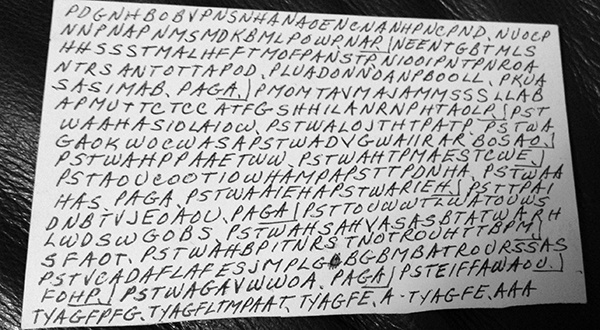 PDGNHBOBVPNSNHANAOENCNANHPNCPND. NUOCP
NNPNAPNMSMDKBMLPOWP. NAP. NEENTGBTMLS
HHSSSTMALHFFTMOFPANSTP. NIOOIPNTPNROA
NTRSANTOTTAPOD. PLUADONNOANPBOOLL. PKUA
SASIMAB. PAGA. PMOMTAVMAJAMMSSSLLAB
APMUTTCTCCATFGSHHILANRNPHTAOLP. PST
WAAHASIOLAIOW. PSTWALOJTHTPATP. PSTWA
GAOKWOCWASAPSTWADVGWAIIRARBOSAO.
PSTWAHPPAAETWW. PSTWAHTPMAESTCWE.
PSTAOUCOOTIOWHAMPAPSTTPDNHA. PSTWAA
HAS. PAGA. PSTWAAIEHAPSTWARIEH. PSTTPAI
DNBTVJEOAOU. PAGA PSTTOUWWTLWATOUWS
LWDSWGOBS. PSTWAHSAHVASASBTATWARH
SFAOT. PSTWAHBPITNRSTNOTROUHTTBPM
PSTVCADAFLAFESJMPLGBGBMBATROURSSAS
FOHP. PSTWAGAVWWOA. PAGA PSTEIFFAWAOU.
TYAGFPFG. TYAGFLTMPAAT. TYAGFE. A-TYAGFE. AAA